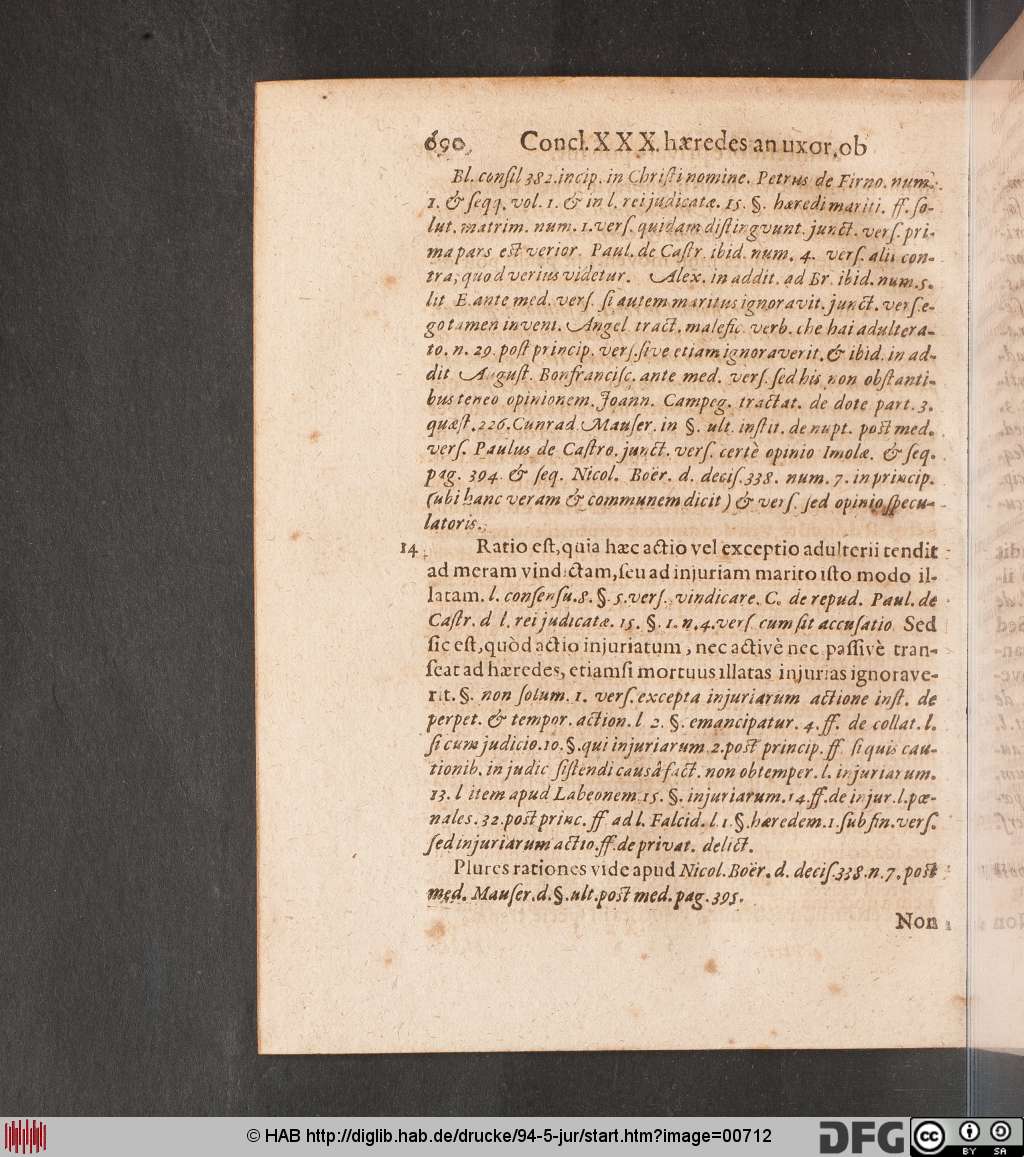 690 Concl. XXX. hæredes an uxor, ob
Bl. conſil 382. incip. in Chriſti nomine. Petrus de Firno. num.
1. & ſeqq. vol. 1. & in l. rei judicatæ. 15. §. hæredi mariti. ff. ſo-
lut. matrim. num. 1. verſ. quidam diſtingvunt. junct. verſ. pri-
ma pars est verior. Paul. de Caſtr. ibid. num. 4. verſ. alii con-
tra, quod verius videtur. Alex. in addit. ad Br. ibid. num. 5.
lit E. ante med. verſ. ſi autem maritus ignoravit. junct. verſ. e-
go tamen inveni. Angel. tract. malefic. verb. che hai adultera-
to. n. 29. poſt princip. verſ. ſive etiam ignoraverit. & ibid. in ad-
dit Auguſt. Bonfranciſc. ante med. verſ. ſed his non obſtanti-
bus teneo opinionem. Joann. Campeg. tractat. de dote part. 3.
quæſt. 226. Cunrad. Mauſer. in §. ult. inſtit. de nupt. post med.
verſ. Paulus de Caſtro. junct. verſ. certè opinio Imolæ. & ſeq.
pag. 394. & ſeq. Nicol. Boër. d. deciſ. 338. num. 7. in princip.
(ubi hanc veram & communem dicit) & verſ. ſed opinio ſpecu-
latoris.
14. Ratio eſt, quia hæc actio vel exceptio adulterii tendit
ad meram vindictam, ſeu ad injuriam marito iſto modo il-
latam. l. conſenſu. 8. §. 5. verſ. vindicare. C. de repud. Paul. de
Caſtr. d l. rei judicatæ. 15. §. 1. n. 4. verſ cum ſit accuſatio Sed
ſic eſt, quòd actio injuriatum, nec activè nec paſſivè tran-
ſeat ad hæredes, etiamſi mortuus illatas injurias ignorave-
rit. §. non ſolum. 1. verſ. excepta injuriarum actione inſt. de
perpet. & tempor. action. l 2. §. emancipatur. 4. ff. de collat. l.
ſi cum judicio. 10. §. qui injuriarum 2. post princip. ff. ſi quis cau-
tionib. in judic ſiſtendi causâ fact. non obtemper. l. injuriarum.
13. l item apud Labeonem 15. §. injuriarum. 14. ff. de injur. l. pœ-
nales. 32. post princ. ff. ad l. Falcid. l. 1. §. hæredem. 1. ſub fin. verſ.
ſed injuriarum actio. ff. de privat. delict.
Plures rationes vide apud Nicol. Boër. d. deciſ. 338. n. 7. post
med. Mauſer. d. §. ult. post med. pag. 395.
Non
© HAB http://diglib.hab.de/drucke/94-5-jur/start.htm?image=00712
DFG
cc BY SA